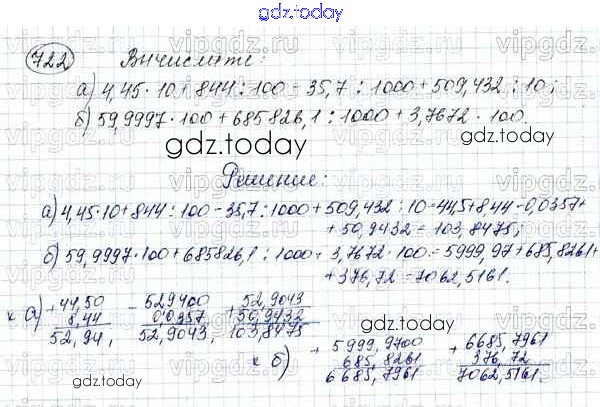 gdz.today
722 Вычислите:
а) 4,45·10+844:100-35,7:1000+509,432:10;
б) 59,9997·100+685826,1:1000+3,7672·100.
gdz.today
Решение:
а) 4,45·10+844:100-35,7:1000+509,432:10=44,5+8,44-0,0357+
+50,9432=103,8475;
б) 59,9997·100+685826,1:1000+3,7672·100=5999,97+685,8261+
+376,72=7062,5161.
к а) +44,50 -529400 +52,9043
8,44 0,0357 50,9432
52,94, 52,9043, 103,8475
к б) +5999,9700 +6685,7961
685,8261 376,72
6685,7961 7062,5161.
gdz.today
gdz.today